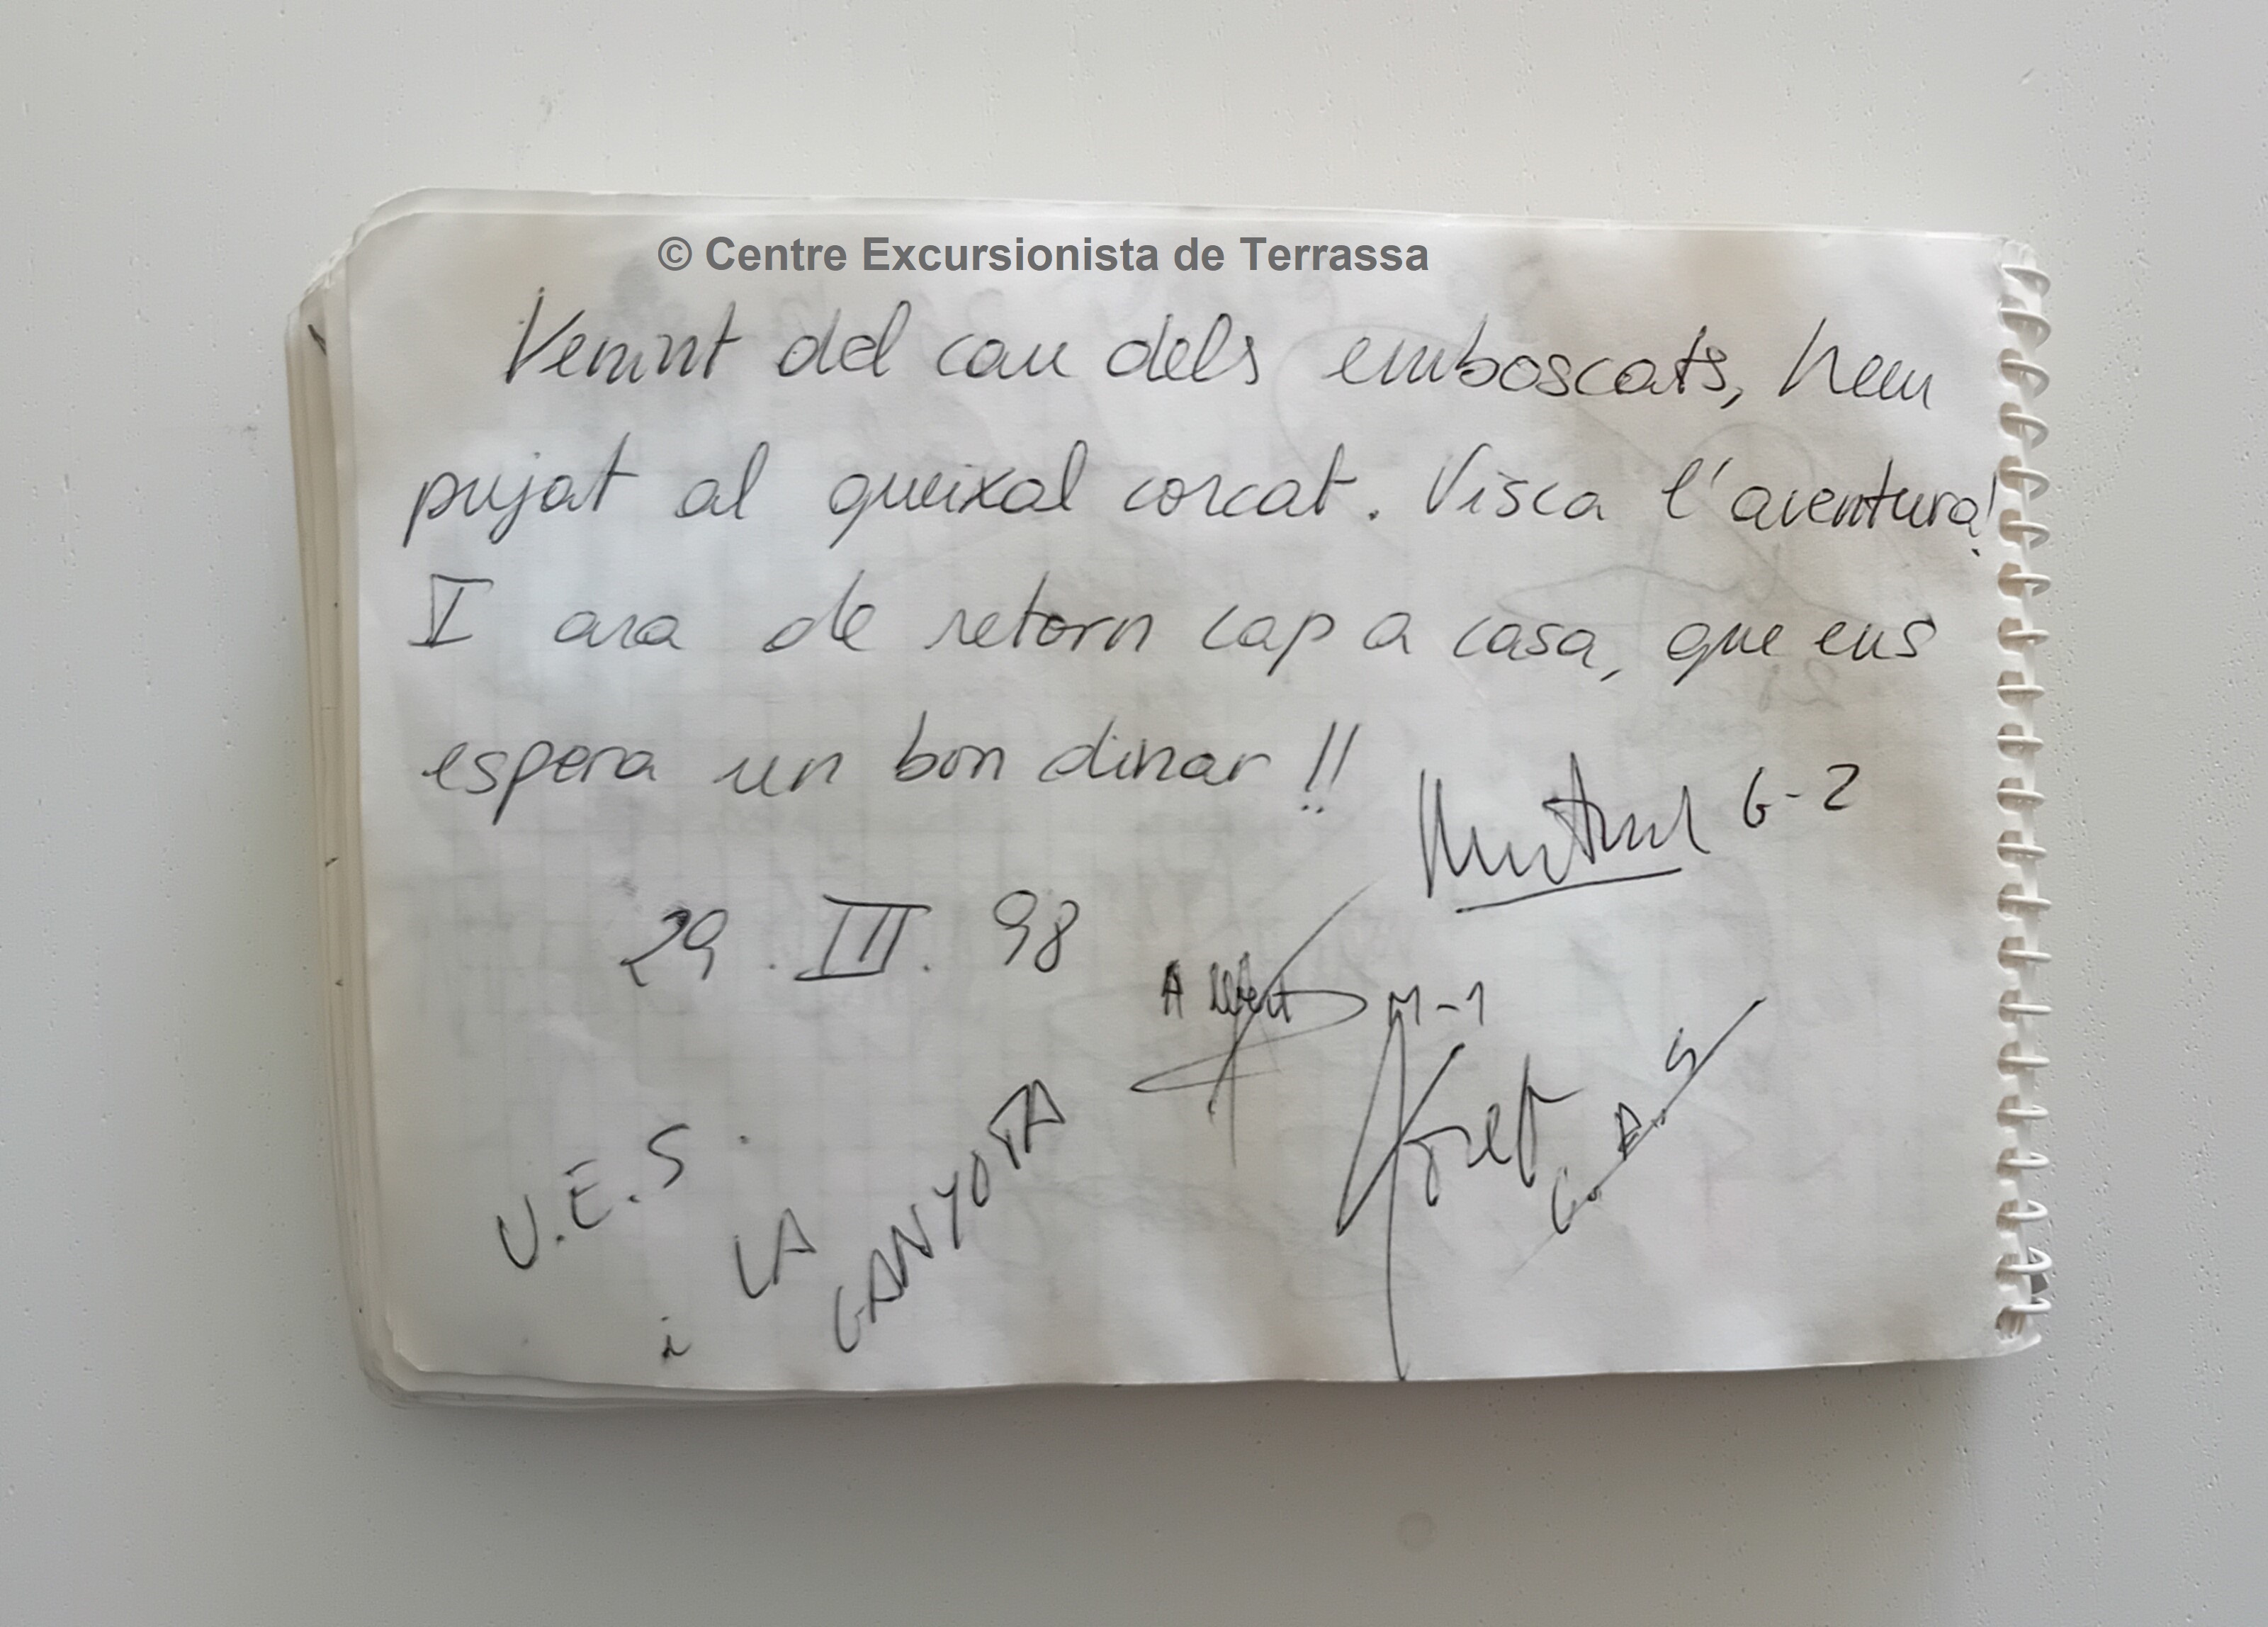 © Centre Excursionista de Terrassa
Venint del cau dels emboscats, hem
pujat al queixal corcat. Visca l'aventura!
I ara de retorn cap a casa, que ens
espera un bon dinar!!
G-2
29. III. 98
Albert
M-1
U.E.S.
i LA GANYOTA